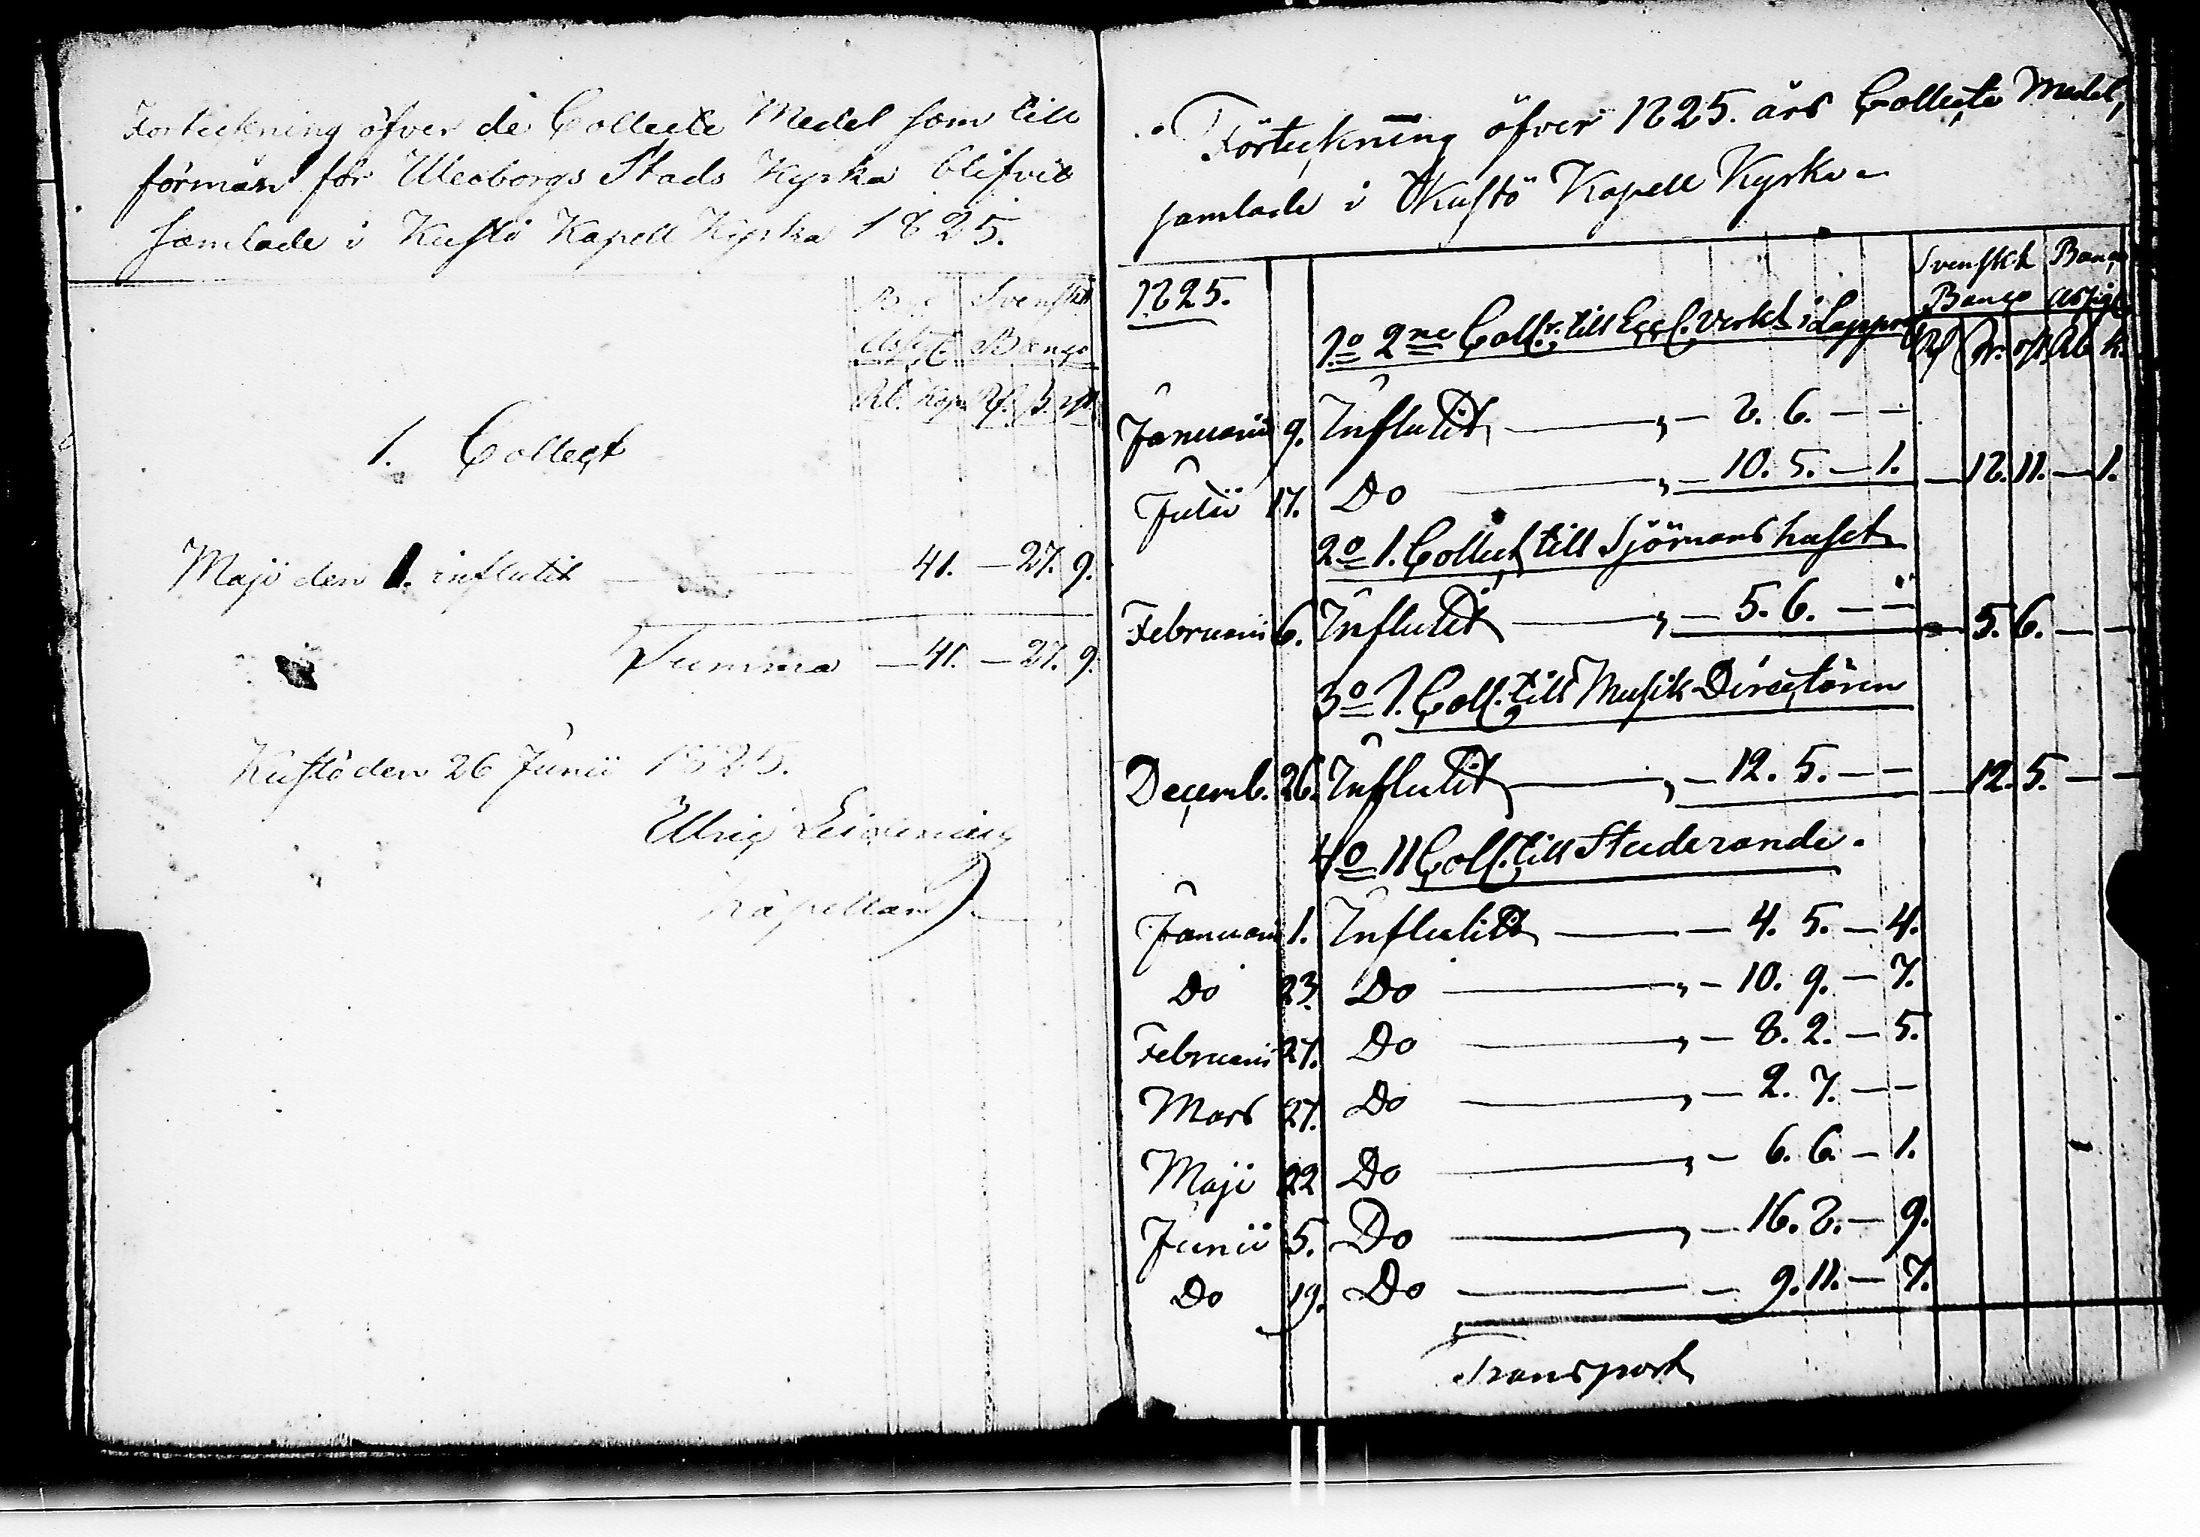 Förteckning öfver de Collecte Medel som till
förmån för Uleoborgs Stads Kyrka blifvit
samlade i Kustö Kapell Kyrka 1825.
Svenskt
Banco
Rb. Kop. R. s. rst.
1. Collect
Maji den 1. influtit — 41. — 27. 9.
Summa — 41. — 27. 9.
Kustö den 26 Junii 1825.
Ulric
Kapellan
Förteckning öfver 1825. års Collecte Medel,
samlade i Kustö Kapell Kyrka
1825.
Svenskt Banco
Banco Assign.
1o 2ne Coll. till Eccl. Verket i Lappm.
Januarii 9. Influtit — „ — 8. 6. — —
Julii 17. Do — „ — 10. 5. — 1. — 18. 11. — 1.
2o 1. Collect till Sjömanshuset
Februarii 6. Influtit — „ — 5. 6. — — — 5. 6. — —
3o 1. Coll. till Musik Directören
Decemb. 26. Influtit — „ — 12. 5. — — — 12. 5. — —
4o 11 Coll. till Studerande.
Januarii 1. Influtit — — 4. 5. — 4.
Do 23. Do — „ — 10. 9. — 7.
Februarii 27. Do — „ — 8. 2. — 5.
Mars 27. Do — „ — 2. 7. — —
Maji 22 Do — „ — 6. 6. — 1.
Junii 5. Do — „ — 16. 8. — 9.
Do 19. Do — — 9. 11. — 7.
Transport